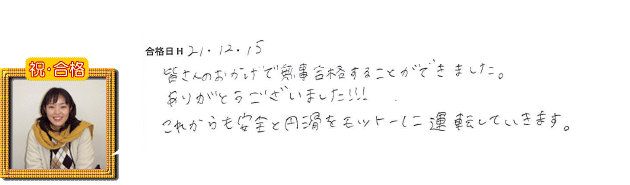 合格日 H 21.12.15
祝・合格
皆さんのおかげで無事合格することができました。
ありがとうございました!!!
これからも安全と円滑をモットーに運転していきます。